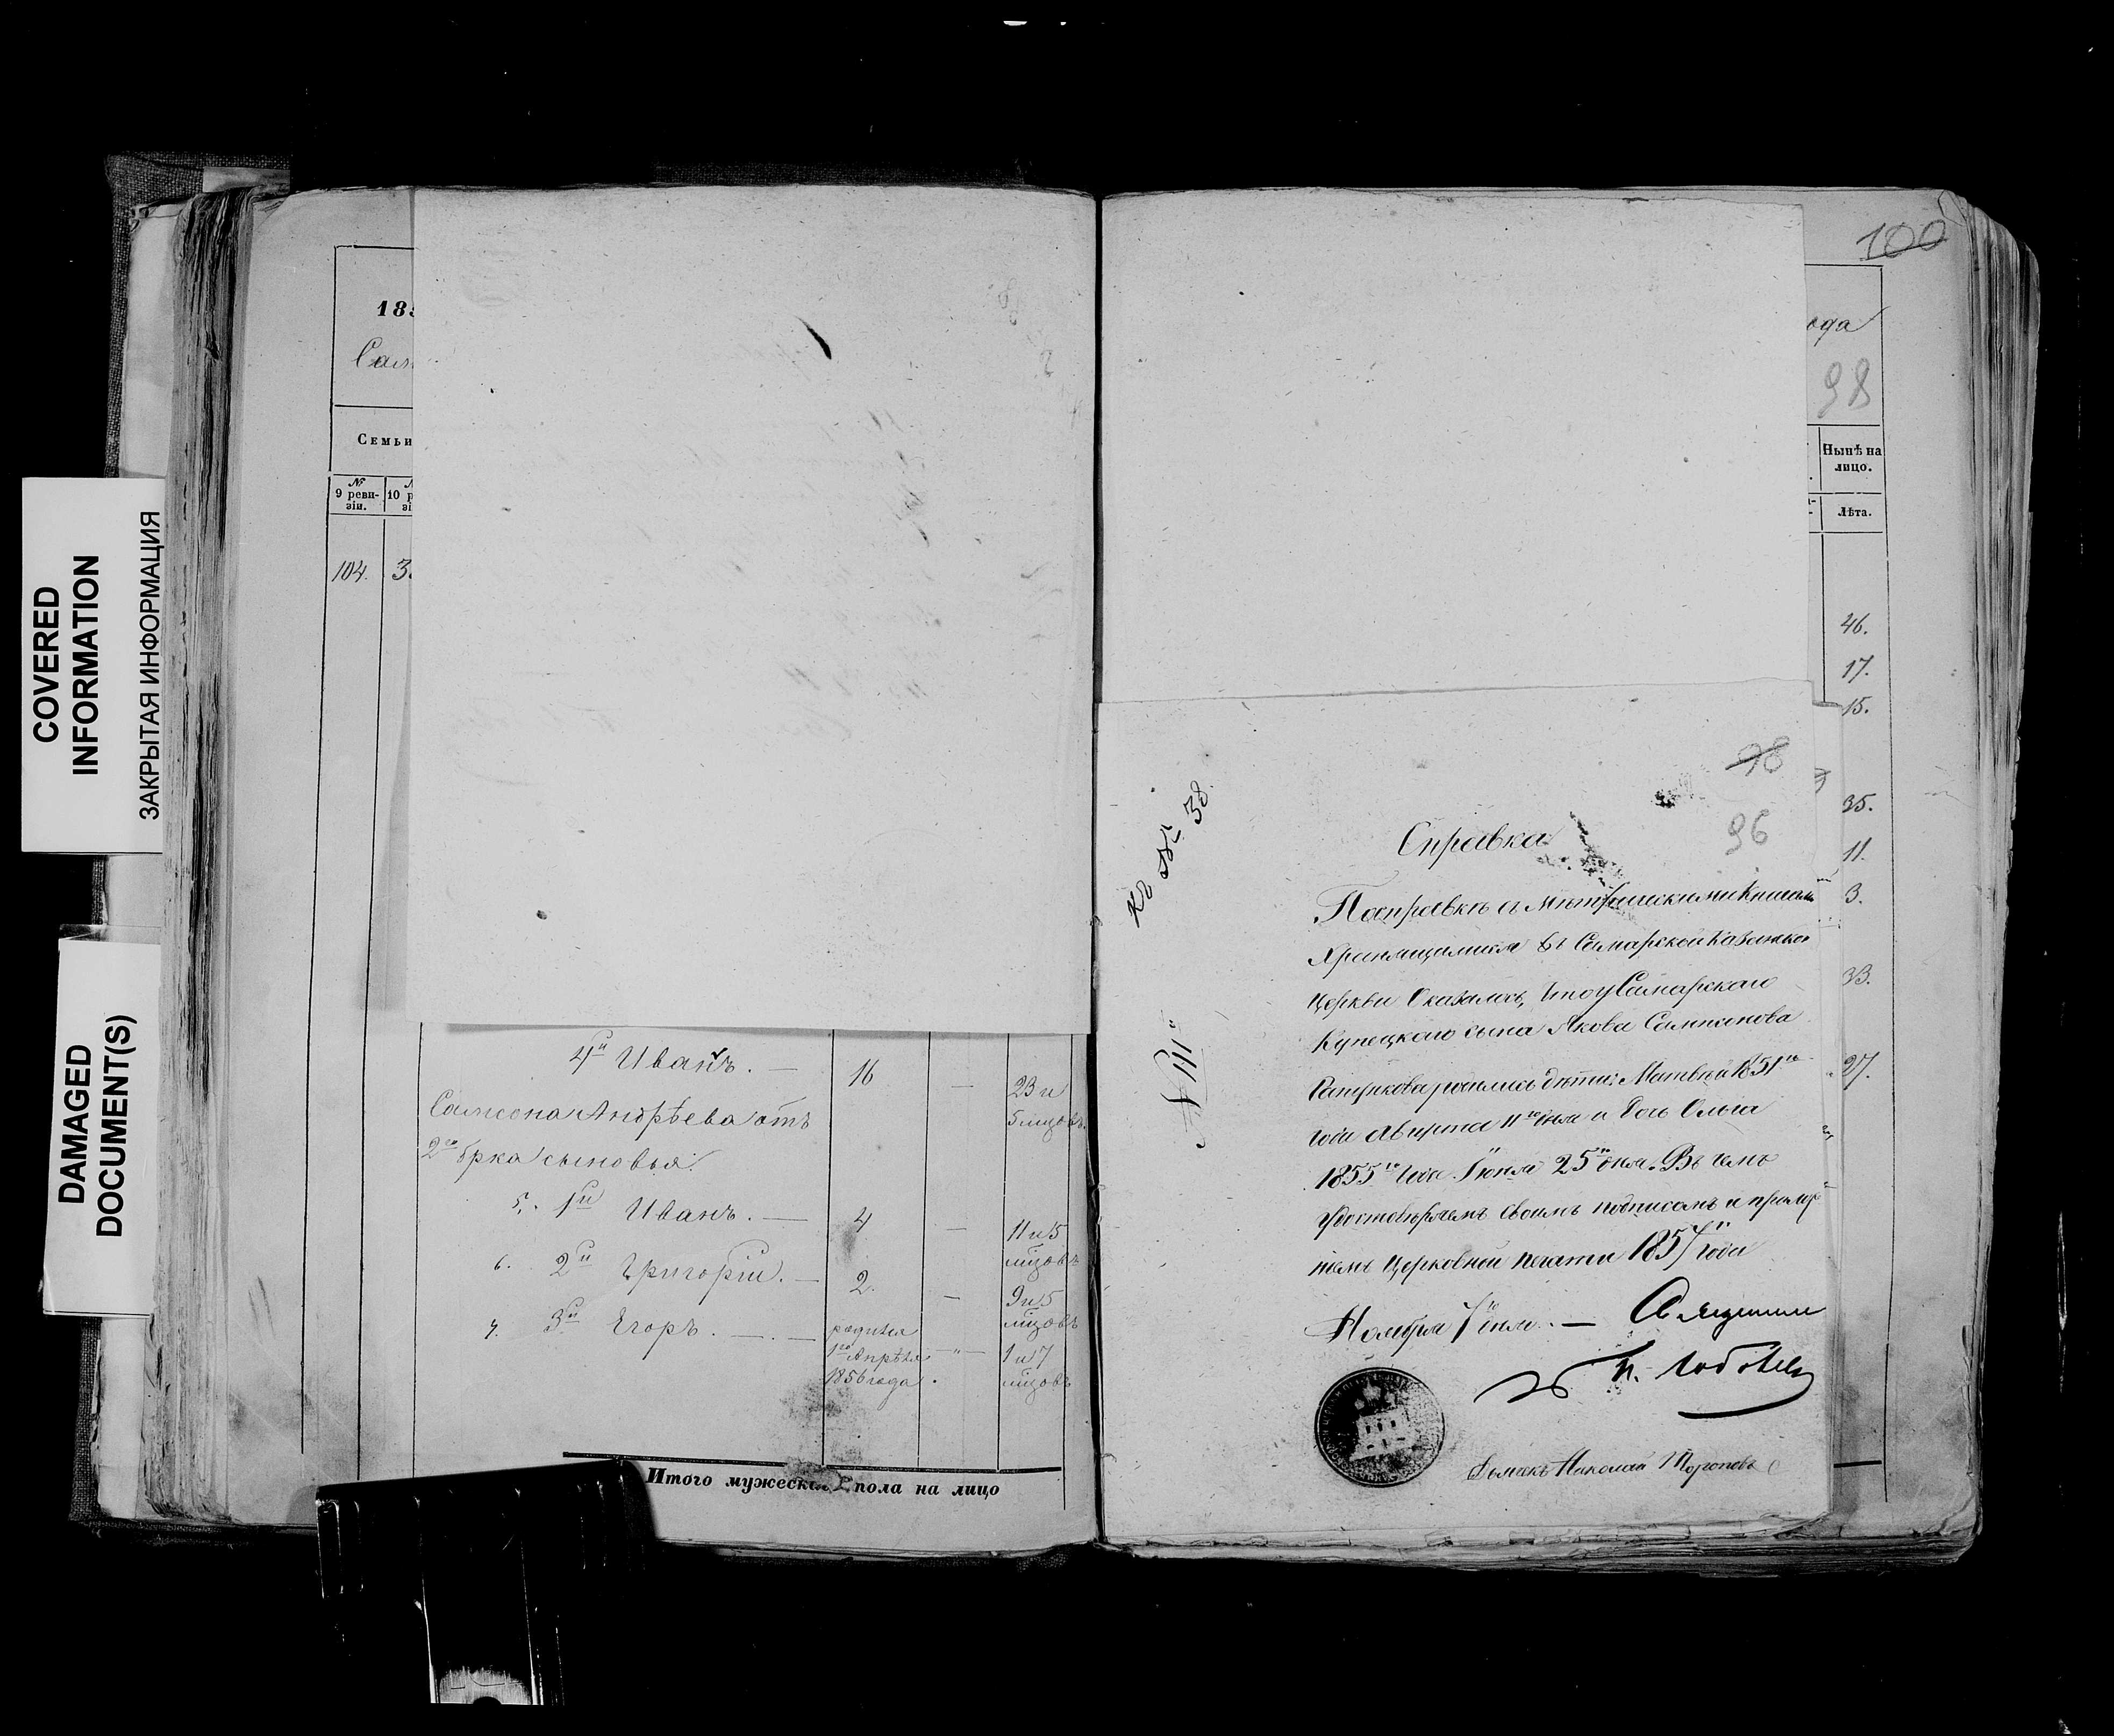 COVERED
INFORMATION
ЗАКРЫТАЯ ИНФОРМАЦИЯ
DAMAGED
DOCUMENT(S)
185
Сам
Семьи
№
9 реви-
зіи.
10 р
зі
104.
3
4й Иванъ. —
16
—
23 и
5 мѣцовъ
Самсона Андрѣева отъ
2го брка сыновья:
5. 1й Иванъ. —
4
—
11 и 5
мѣцовъ
6. 2й Григорій. —
2.
—
9 и 5
мѣцовъ
7. 3й Егоръ. — . —
родился
1го Апрѣля
1856 года.
— " —
1 и 7
мѣцовъ
Итого мужеска пола на лицо
100
ода
98
Нынѣ на
лицо.
Лѣта.
46.
17.
15.
35.
11.
3.
33.
27.
98
96
Къ № 38.
Справка
По справкѣ с Метрическими Книгами
Хранящимися въ Самарской
Церкви Оказалось, что у Самарскаго
Купецкаго сына Якова Самсонова
родились дѣти: Матвѣй 1851го
года Августа 11го дня и Дочь Ольга
1855го Года Iюня 25го дня. Въ чемъ
Удостовѣряемъ своимъ подписомъ и прилож
ніемъ Церковной печати 1857 Года
Ноября 7го дня. —
Дьячекъ Николай